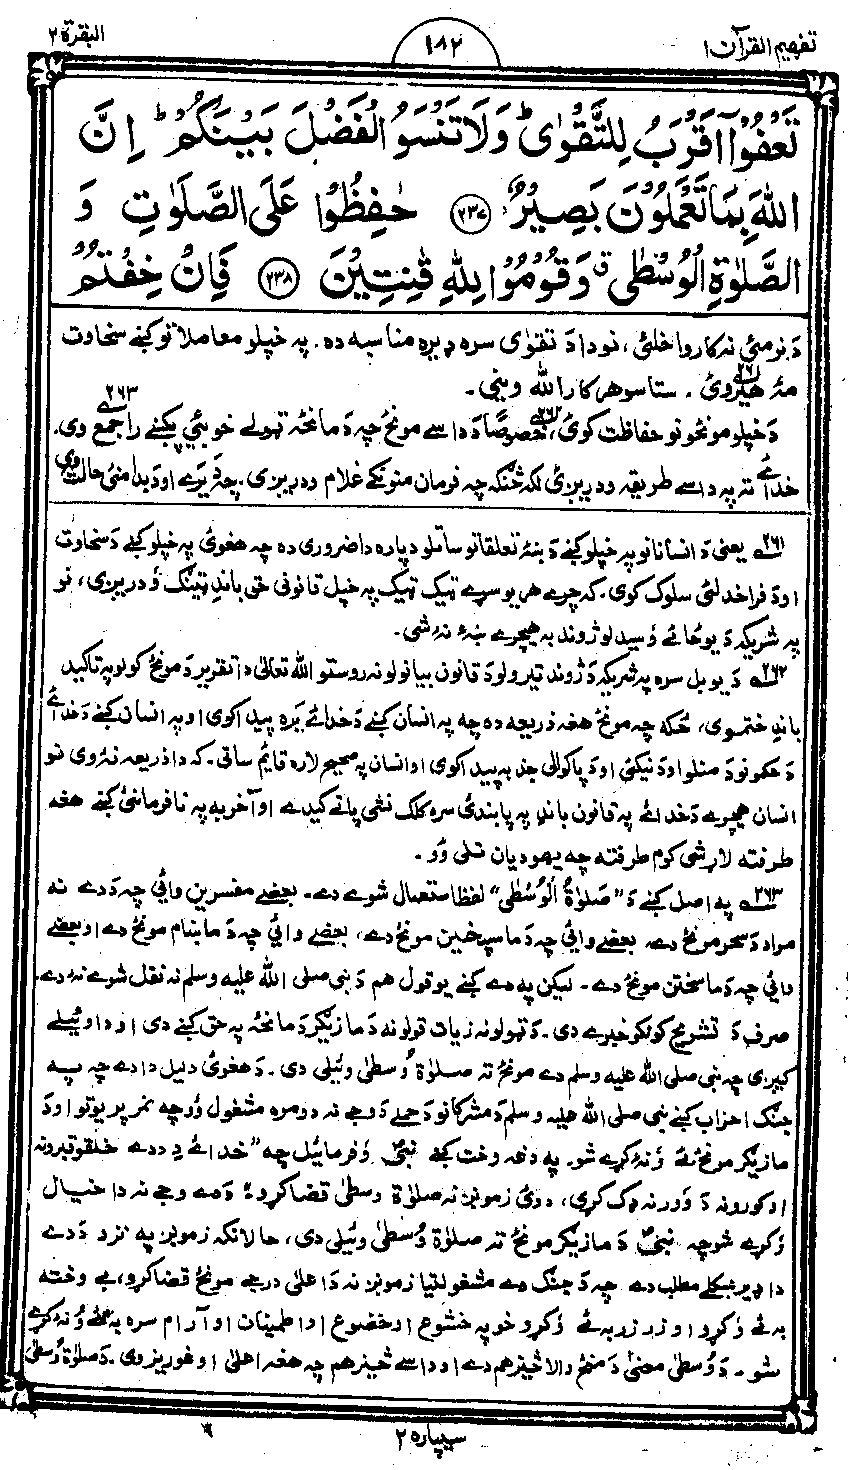 تفہیم القرآن ۱
۱۸۲
البقرۃ ۲
تَعْفُوْٓا اَقْرَبُ لِلتَّقْوٰىؕ وَلَا تَنْسَوُا الْفَضْلَ بَيْنَكُمْؕ اِنَّ
اللّٰهَ بِمَا تَعْمَلُوْنَ بَصِيْرٌ ﴿۲۳۷﴾ حٰفِظُوْا عَلَى الصَّلَوٰتِ وَ
الصَّلٰوةِ الْوُسْطٰى ۗ وَقُوْمُوْا لِلّٰهِ قٰنِتِيْنَ ﴿۲۳۸﴾ فَاِنْ خِفْتُمْ
د نرمئی نه کار واخلئی، نو دا د تقوٰی سره ډېره مناسبه ده. په خپلو معاملاتو کښے سخاوت
مهٔ هیروئ ۲۶۱. ستاسو هر کار الله وینی.
د خپلو مونځونو حفاظت کوئ ۲۶۲، خصوصًا د داسے مونځ چه د مانځهٔ ټولے خوبئی پکښے راجمع دی ۲۶۳.
خدائے ته په داسے طریقه ودریږئ لکه څنګه چه فرمان منونکے غلام ودریږی. چه د یرے او د بدامنئ حالت وی
۲۶۱ یعنی د انسانانو په خپلو کښے د ښهٔ تعلقاتو ساتلو دپاره دا ضروری ده چه هغوئ په خپلو کښے د سخاوت
او د فراخدلئ سلوک کوی. که چرے هر یو سړے ټیک ټیک په خپل قانونی حق باندِ ټینګ وُدریږی، نو
په شریکه د یو ځائے اوسیدلو ژوند به هیچرے ښهٔ نهٔ شی.
۲۶۲ د یو بل سره په شریکه د ژوند تیرولو د قانون بیانولو نه روستو الله تعالٰی دا تقریر د مونځ کولو په تاکید
باندِ ختموی، ځکه چه مونځ هغه ذریعه ده چه په انسان کښے د خدائے یره پیدا کوی او په انسان کښے د خدائے
د حکمونو د منلو او د نیکئ او د پاکوالی جذبه پیدا کوی او انسان په صحیح لاره قایم ساتی. که دا ذریعه نهٔ وی نو
انسان هیچرے د خدائے په قانون باندِ په پابندئ سره کلک نشی پاتے کیدے او آخر به په نافرمانئ کښے هغه
طرفته لاړ شی کوم طرفته چه یهودیان تلی وُو.
۲۶۳ په اصل کښے د "صَلوٰةُ الْوُسْطٰی" لفظ استعمال شوے دے. بعضے مفسرین وائی چه د دے نه
مراد د سحر مونځ دے، بعضے وائی چه د ماسپخین مونځ دے، بعضے وائی چه د ماښام مونځ دے او بعضے
وائی چه د ماسختن مونځ دے. لیکن په دے کښے یو قول هم د نبی صلی الله علیه وسلم نه نقل شوے نهٔ دے.
صرف د تشریح کوُنکو خبرے دی. د ټولو نه زیات قولونه د مازیګر د مانځهٔ په حق کښے دی او دا وئیلے
کیږی چه نبی صلی الله علیه وسلم دے مونځ ته صلوٰة وُسطٰی وئیلی دی. د هغوئ دلیل دا دے چه په
جنګ احزاب کښے نبی صلی الله علیه وسلم د مشرکانو د حملے د وجے نه دومره مشغول وُو چه نمر پریوتو او د
مازیګر مونځ ئے وُ نهٔ کړے شو. په دغه وخت کښے نبیؐ وُفرمائیل چه "خدائے دِ د دے خلقو قبرونه
او کورونه د وُور نه ډک کړی، دوئ زمونږ نه صلوٰة وسطٰی قضا کړو" د دے وجے نه دا خیال
وُکړے شو چه نبیؐ د مازیګر مونځ ته صلوٰة وُسطٰی وئیلی دی، حالانکه زمونږ په نزد د دے
دا ډیر ښکلے مطلب دے چه د جنګ دے مشغولتیا زمونږ نه د اعلیٰ درجے مونځ قضا کړو، بے وخته
به ئے وُکړو او زر زر به ئے وُکړو خو په خشوع او خضوع او اطمینان او آرام سره به مئے وُ نهٔ کړے
شو. د وُسطٰی معنیٰ د منځ والا څیز هم دے او داسے څیز هم چه هغه اعلیٰ او غوریز وی. د صلوٰة وُسطٰی
سیپاره ۲